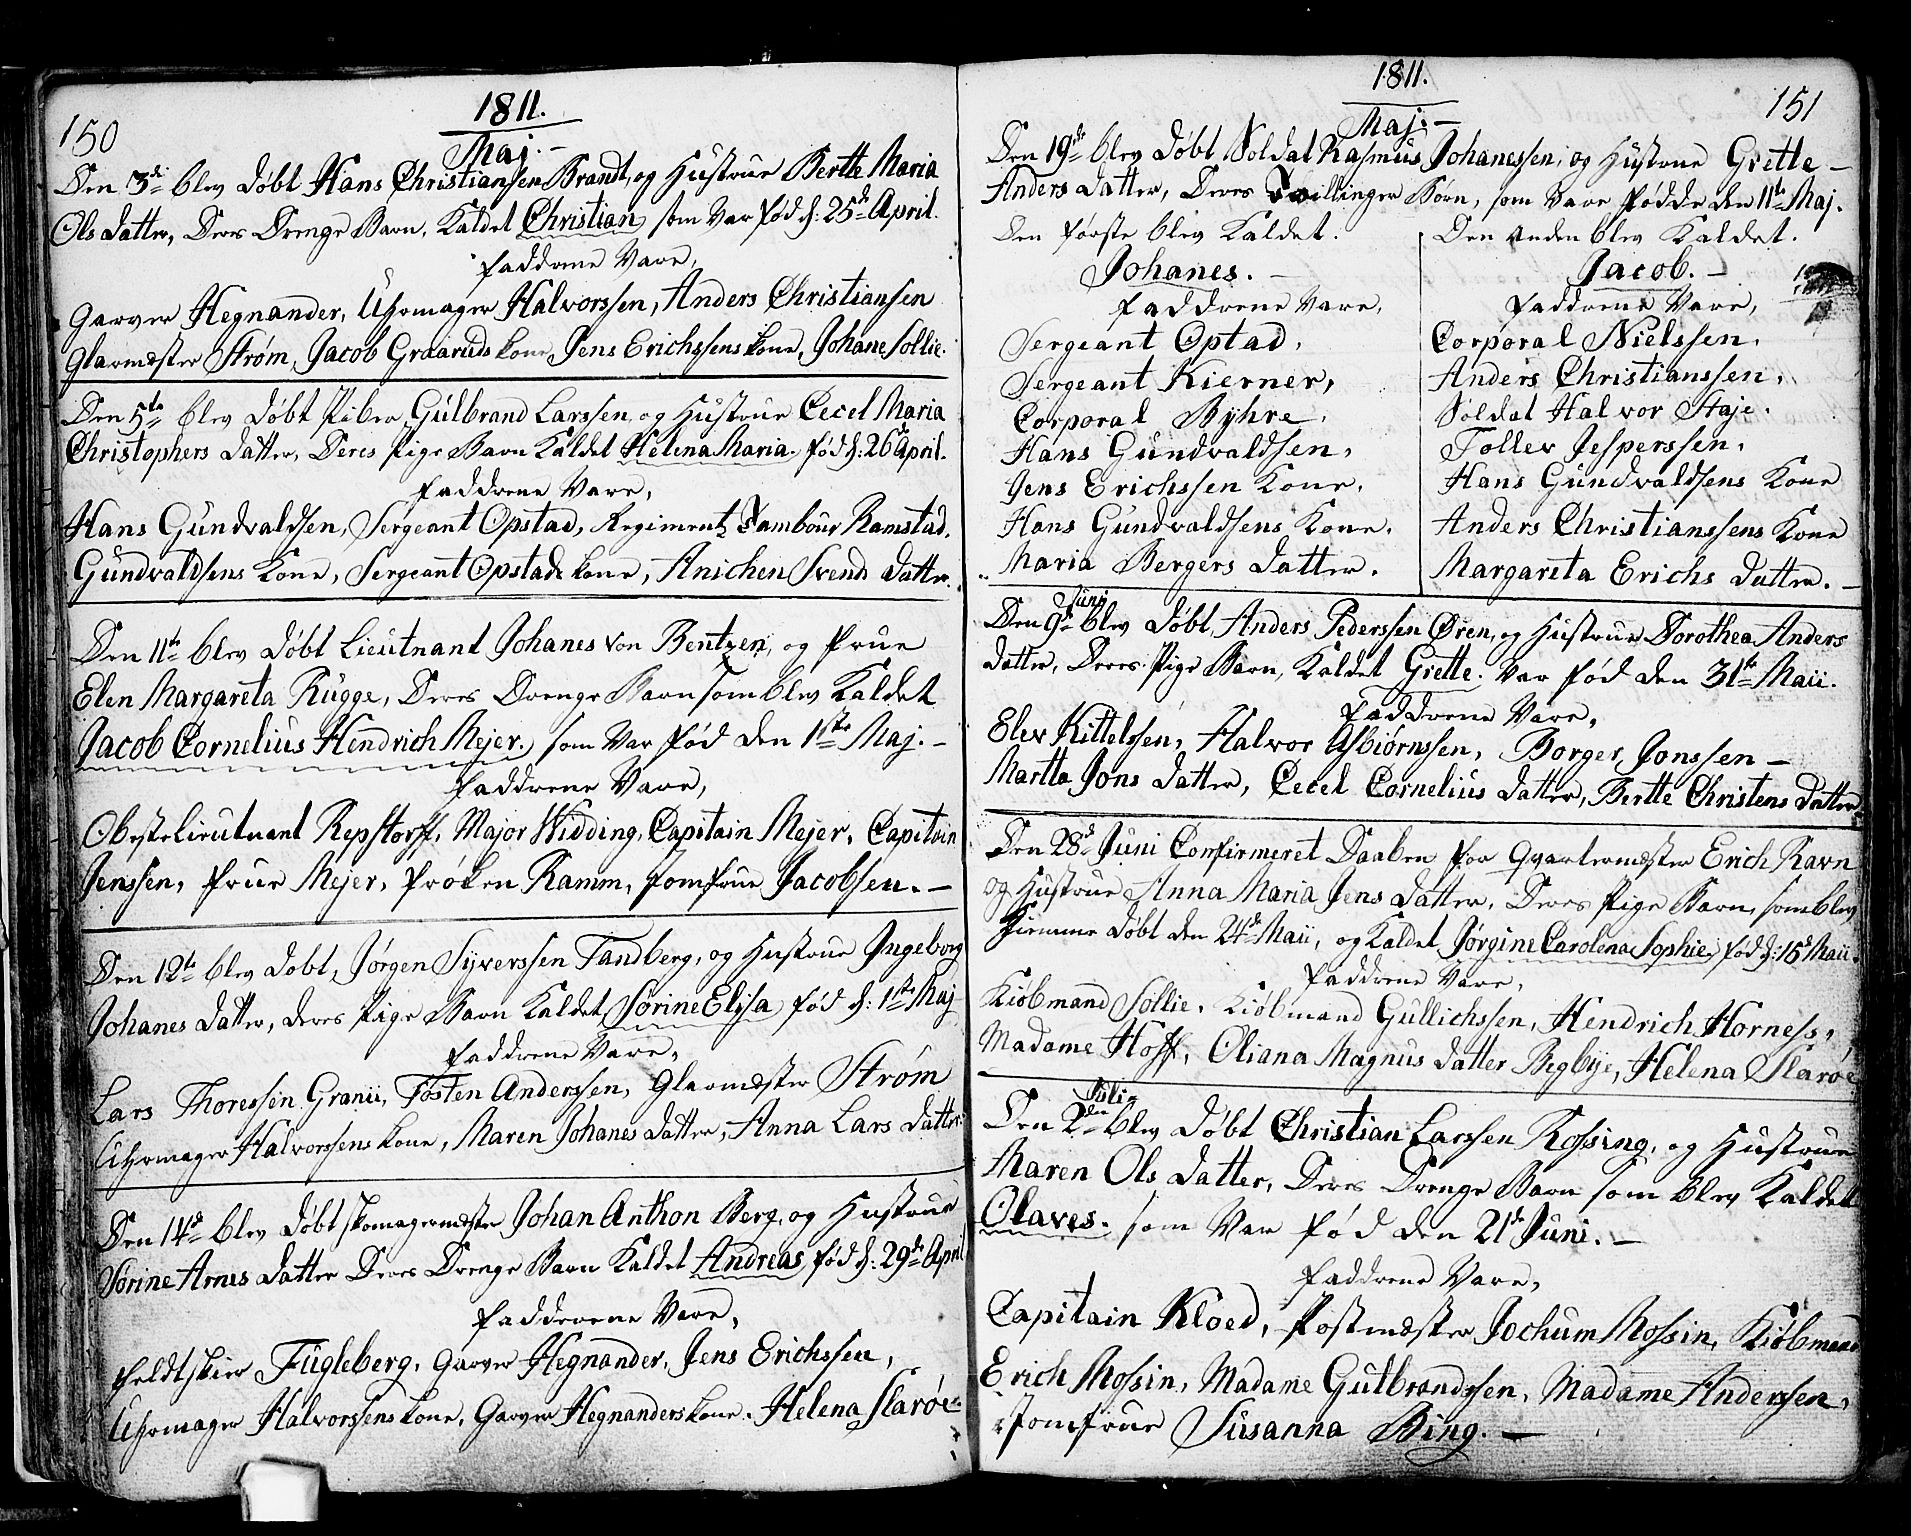 150
1811.
Maj. —
Den 3di blev Døbt Hans Christiansen Brandt, og Hustrue Berthe Maria
Ols Datter, Deres Drenge Barn, Kaldet Christian, som var fød d: 25de April.
Faddrene Vare,
Garver Hegnander, Uhrmager Halvorssen, Anders Christiansen
Glarmæster Strøm, Jacob Graaruds Kone, Jens Erichssens Kone, Johane Sollie.
Den 5te blev Døbt Piber Gulbrand Larssen, og Hustrue Cecel Maria
Christophers Datter, Deres Pige Barn Kaldet Helena Maria, fød d: 26de April.
Faddrene Vare,
Hans Gundvaldsen, Sergeant Opstad, Regiments Tambour Ramstad,
Gundvaldsens Kone, Sergeant Opstads Kone, Anichen Svends Datter.
Den 11te blev Døbt Lieutnant Johanes von Bentzen, og Frue
Elen Margareta Rugge, Deres Drenge Barn som blev Kaldet
Jacob Cornelius Hendrich Mejer. som var fød den 1ste Maj. —
Faddrene Vare,
Obestelieutnant Repstorff, Major Widding, Capitain Mejer, Capitain
Jenssen, Frue Mejer, Frøken Ramm, Jomfrue Jacobsen. —
Den 12te blev Døbt, Jørgen Syverssen Tandberg, og Hustrue Ingeborg
Johanes Datter, deres Pige Barn Kaldet Sørine Elisa fød d: 1ste Maj
Faddrene Vare,
Lars Thoressen Granii, Tosten Anderssen, Glarmæster Strøm
Uhrmager Halvorssens Kone, Maren Johanes Datter, Anna Lars Datter.
Den 14de blev Døbt Skomagermæster Johan Anthon Berg, og Hustrue
Sørine Arnes Datter Deres Drenge Barn Kaldet Andreas, fød d: 29de April
Fadderene Vare,
Feldtskier Fugleberg, Garver Hegnander, Jens Erichssen,
Uhrmager Halvorssens Kone, Garver Hegnanders Kone. Helena Slarøe
1811.
151
Maj. —
Den 19de blev Døbt, Soldat Rasmus Johanessen, og Hustrue Grette —
Anders Datter, Deres Tvillinger Børn, som Vare fødde den 11te Maj.
Den første blev Kaldet.
Johanes. —
Faddrene Vare,
Sergeant Opstad,
Sergeant Kierner,
Corporal Byhre.
Hans Gundvaldsen,
Jens Erichssen Kone,
Hans Gundvaldsens Kone.
Maria Bergers Datter.
Den anden blev Kaldet.
Jacob. —
Faddrene Vare,
Corporal Nielssen.
Anders Christianssen,
Soldat Halvor Staje.
Tollev Jesperssen,
Hans Gundvaldsens Kone
Anders Christianssens Kone
Margareta Erichs Datter. —
Junij
Den 9de blev Døbt, Anders Pederssen Øren, og Hustrue Dorothea Anders
Datter, Deres Pige Barn, Kaldet Grette. var fød den 31te Maii.
Faddrene Vare,
Elev Kittelssen, Halvor Asbiørnssen, Borger Jonssen —
Martta Jons Datter, Cecel Cornelius Datter, Bertte Christens Datter
Den 28de Juni Confirmeret Daaben for Qvartermæster Erich Ravn
og Hustrue Anna Maria Jens Datter. Deres Pige Barn, som blev
Hiemme Døbt den 24de Maii, og Kaldet, Jørgine Carolena Sophie, fød d: 15de Maii.
Faddrene Vare,
Kiøbmand Sollie, Kiøbmand Gullichssen, Hendrich Horness,
Madame Hoff, Oliana Magnus Datter Begbye, Helena Slarøe
Juli
Den 2den blev Døbt Christian Larssen Rossing, og Hustrue
Maren Ols Datter, Deres Drenge Barn som blev Kaldet
Olaves. som Var fød den 21de Juni. —
Faddrene Vare,
Capitain Kloed, Postmæster Jochum Mossin, Kiøbmand
Erich Mossin, Madame Gulbrandssen, Madame Anderssen,
Jomfrue Susanna Bing. —